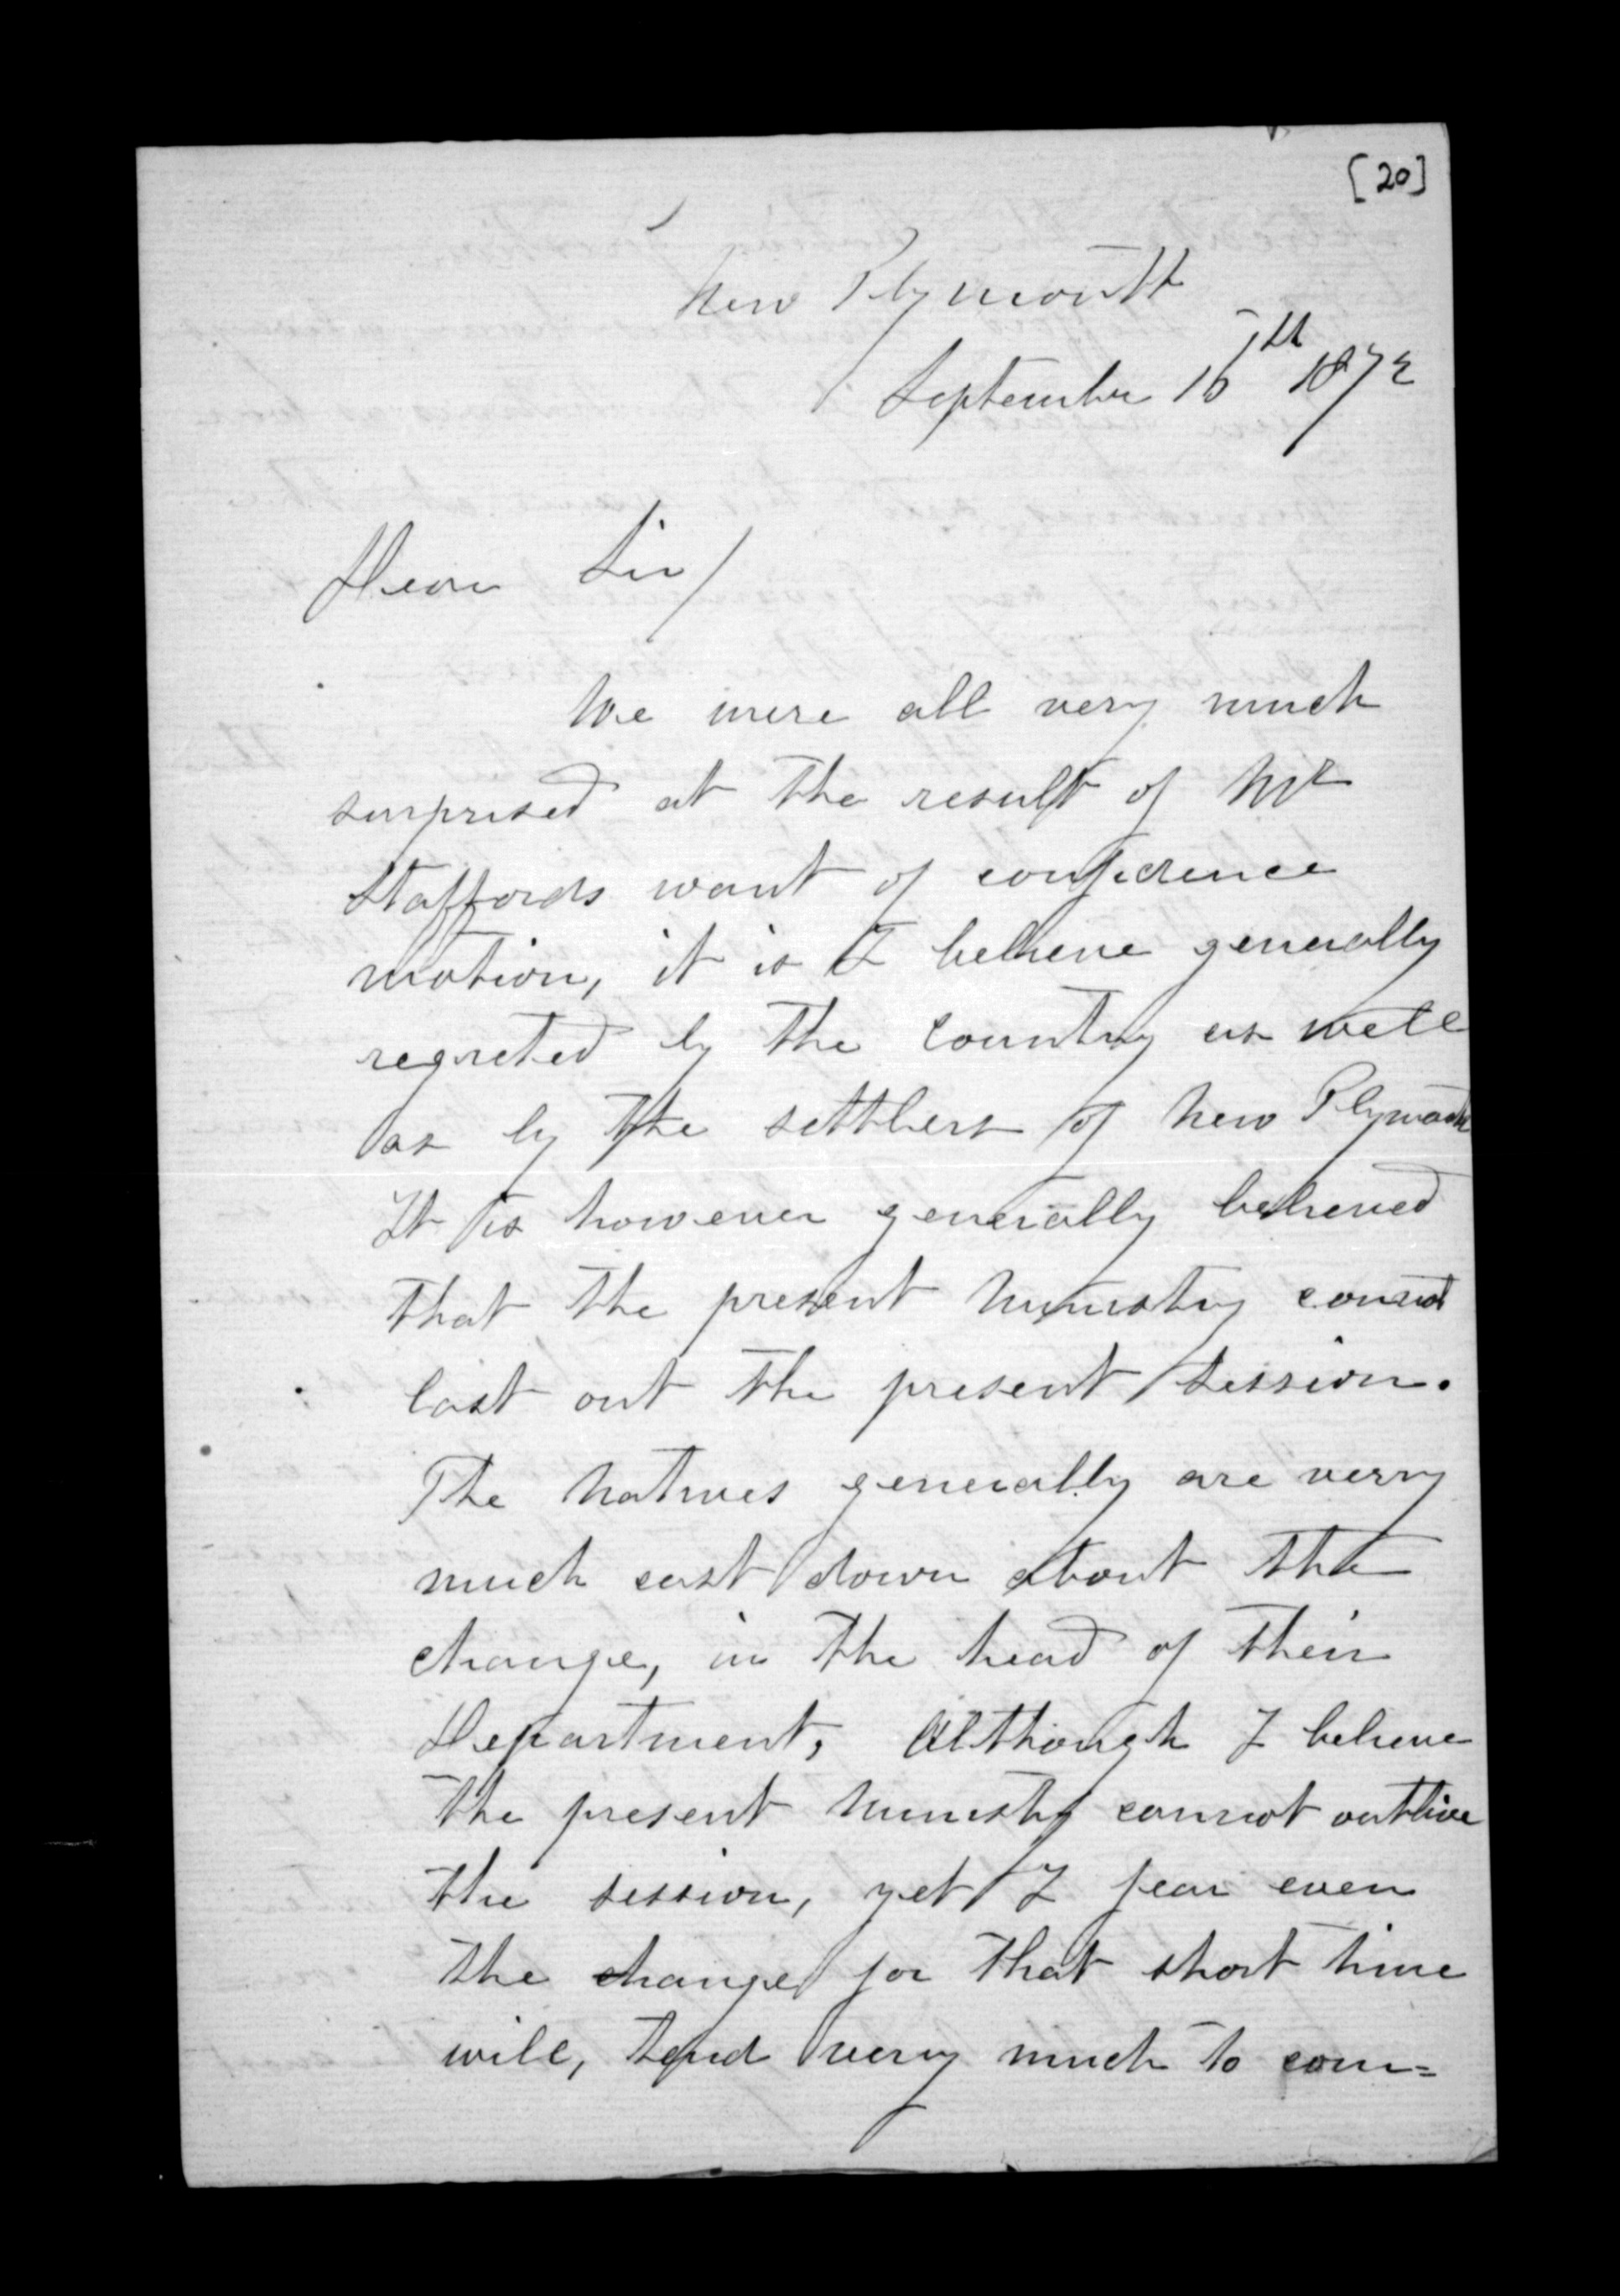 [20]
New Plymouth
September 15th 1872
Dear Sir/
We were all very much
surprised at the result of Mr
Staffords want of confidence
motion, it is I believe generally
regreted by the Country as well
as by the settlers of New Plymouth
It is however generally believed
that the present Ministry cannot
last out the present session.
The Natives generally are very
much cast down about the
change, in the head of their
Department, Although I believe
the present Ministry cannot outlive
the session, yet I fear even
the change for that short time
will, tend very much to com=